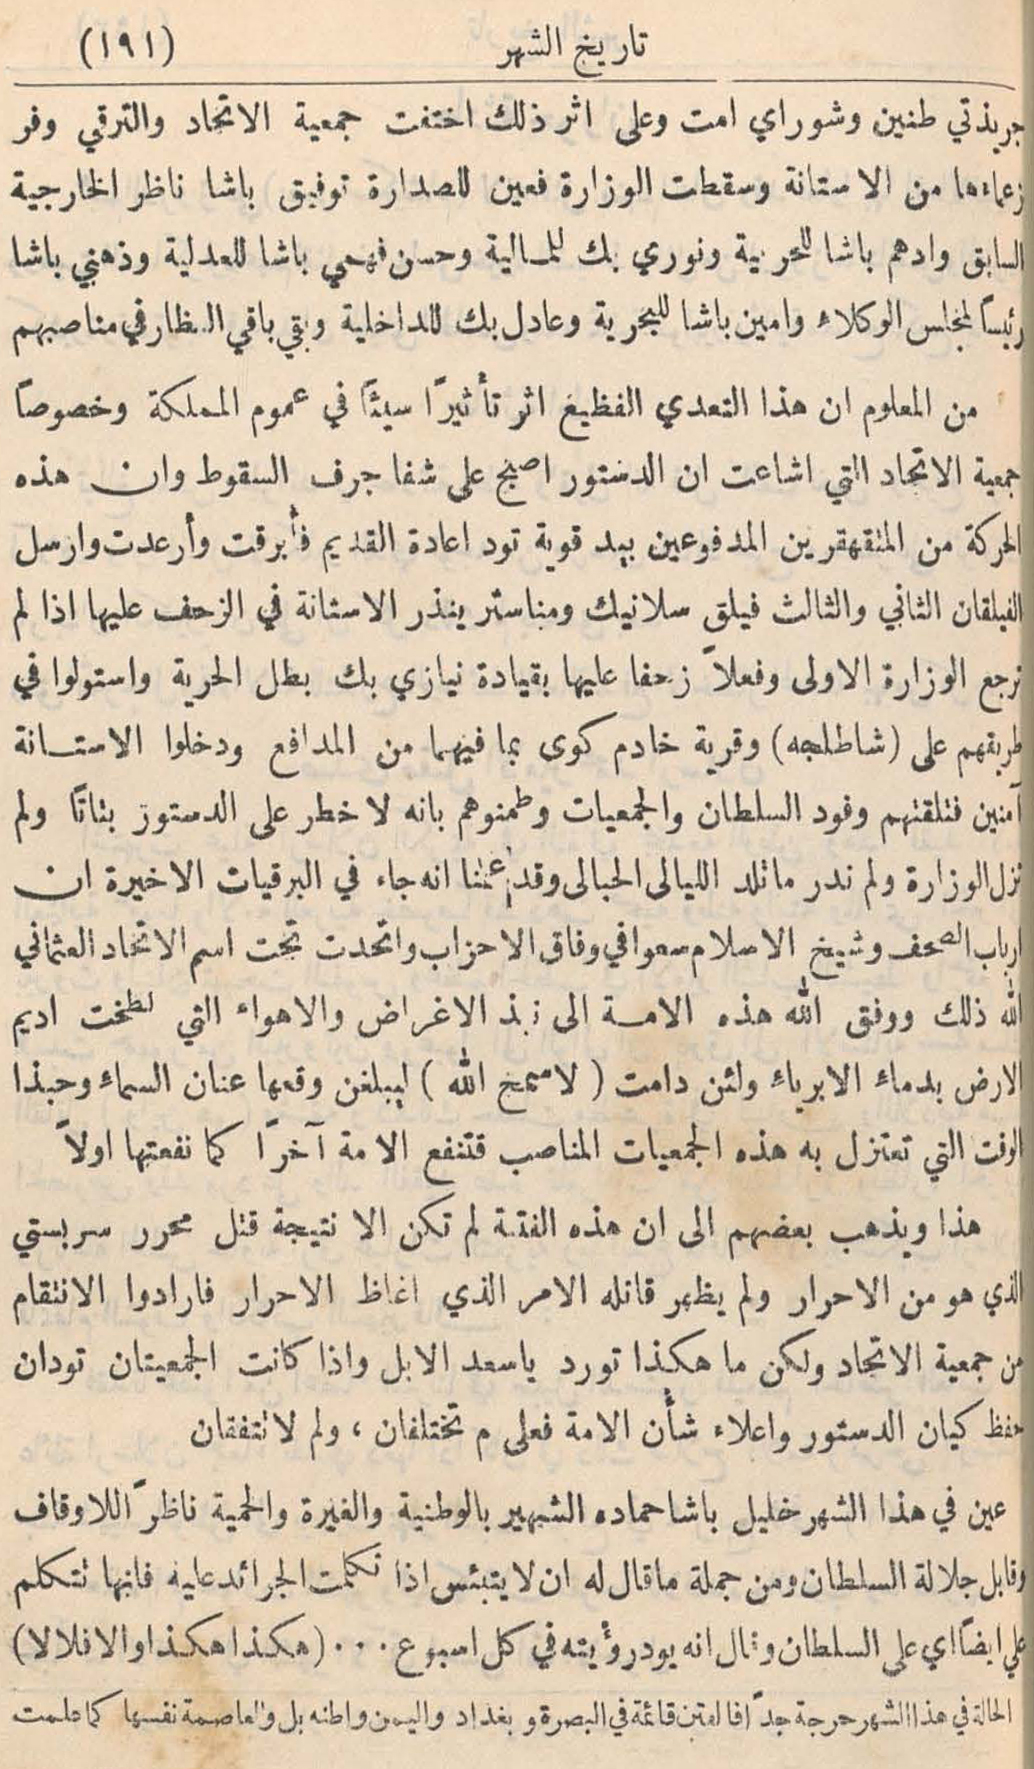 تاريخ الشهر (١٩١)
جريدتي طنين وشوراي امت وعلى اثر ذلك اختفت جمعية الاتحاد والترقي وفر
زعماءها من الاستانة وسقطت الوزارة فعين للصدارة توفيق باشا ناظر الخارجية
السابق وادهم باشا للحربية ونوري بك للمالية وحسن فهمي باشا للعدلية وذهني باشا
رئيسًا لمجلس الوكلاء وامين باشا للبحرية وعادل بك للداخلية وبقي باقي النظار في مناصبهم
من المعلوم ان هذا التعدي الفظيع اثر تأثيرًا سيئًا في عموم المملكة وخصوصًا
جمعية الاتحاد التي اشاعت ان الدستور اصبح على شفا جرف السقوط وان هذه
الحركة من المتقهقرين المدفوعين بيد قوية تود اعادة القديم فأبرقت وأرعدت وارسل
الفيلقان الثاني والثالث فيلق سلانيك ومناستر ينذر الاستانة في الزحف عليها اذا لم
ترجع الوزارة الاولى وفعلاً زحفا عليها بقيادة نيازي بك بطل الحرية واستولوا في
طريقهم على (شاطلجه) وقرية خادم كوى بما فيهما من المدافع ودخلوا الاستانة
آمنين فتلقتهم وفود السلطان والجمعيات وطمنوهم بانه لا خطر على الدستور بتاتًا ولم
تزل الوزارة ولم ندر ماتلد الليالى الحبالى وقد علمنا انه جاء في البرقيات الاخيرة ان
ارباب الصحف وشيخ الاسلام سعوا في وفاق الاحزاب واتحدت تحت اسم الاتحاد العثماني
الله ذلك ووفق الله هذه الامة الى نبذ الاغراض والاهواء التي لطخت اديم
الارض بدماء الابرياء ولئن دامت (لا سمح الله) ليبلغن وقعها عنان السماء وحبذا
الوقت التي تعتزل به هذه الجمعيات المناصب فتنفع الامة آخرًا كما نفعتها اولاً
هذا ويذهب بعضهم الى ان هذه الفتنة لم تكن الا نتيجة قتل محرر سربستي
الذي هو من الاحرار ولم يظهر قاتله الامر الذي اغاظ الاحرار فارادوا الانتقام
من جمعية الاتحاد ولكن ما هكذا تورد ياسعد الابل واذا كانت الجمعيتان تودان
حفظ كيان الدستور واعلاء شأن الامة فعلى م تختلفان ، ولم لا تتفقان
عين في هذا الشهر خليل باشا حماده الشهير بالوطنية والغيرة والحمية ناظرًا للاوقاف
وقابل جلالة السلطان ومن جملة ماقال له ان لا يبتئس اذا تكلمت الجرائد عليه فانها تتكلم
علي ايضًا اي على السلطان وقال انه يود رؤيته في كل اسبوع ... (هكذا هكذا والا فلا لا)
الحالة في هذا الشهر حرجة جدًا فالفتن قائمة في البصرة وبغداد واليمن واطنه بل والعاصمة نفسها كما علمت